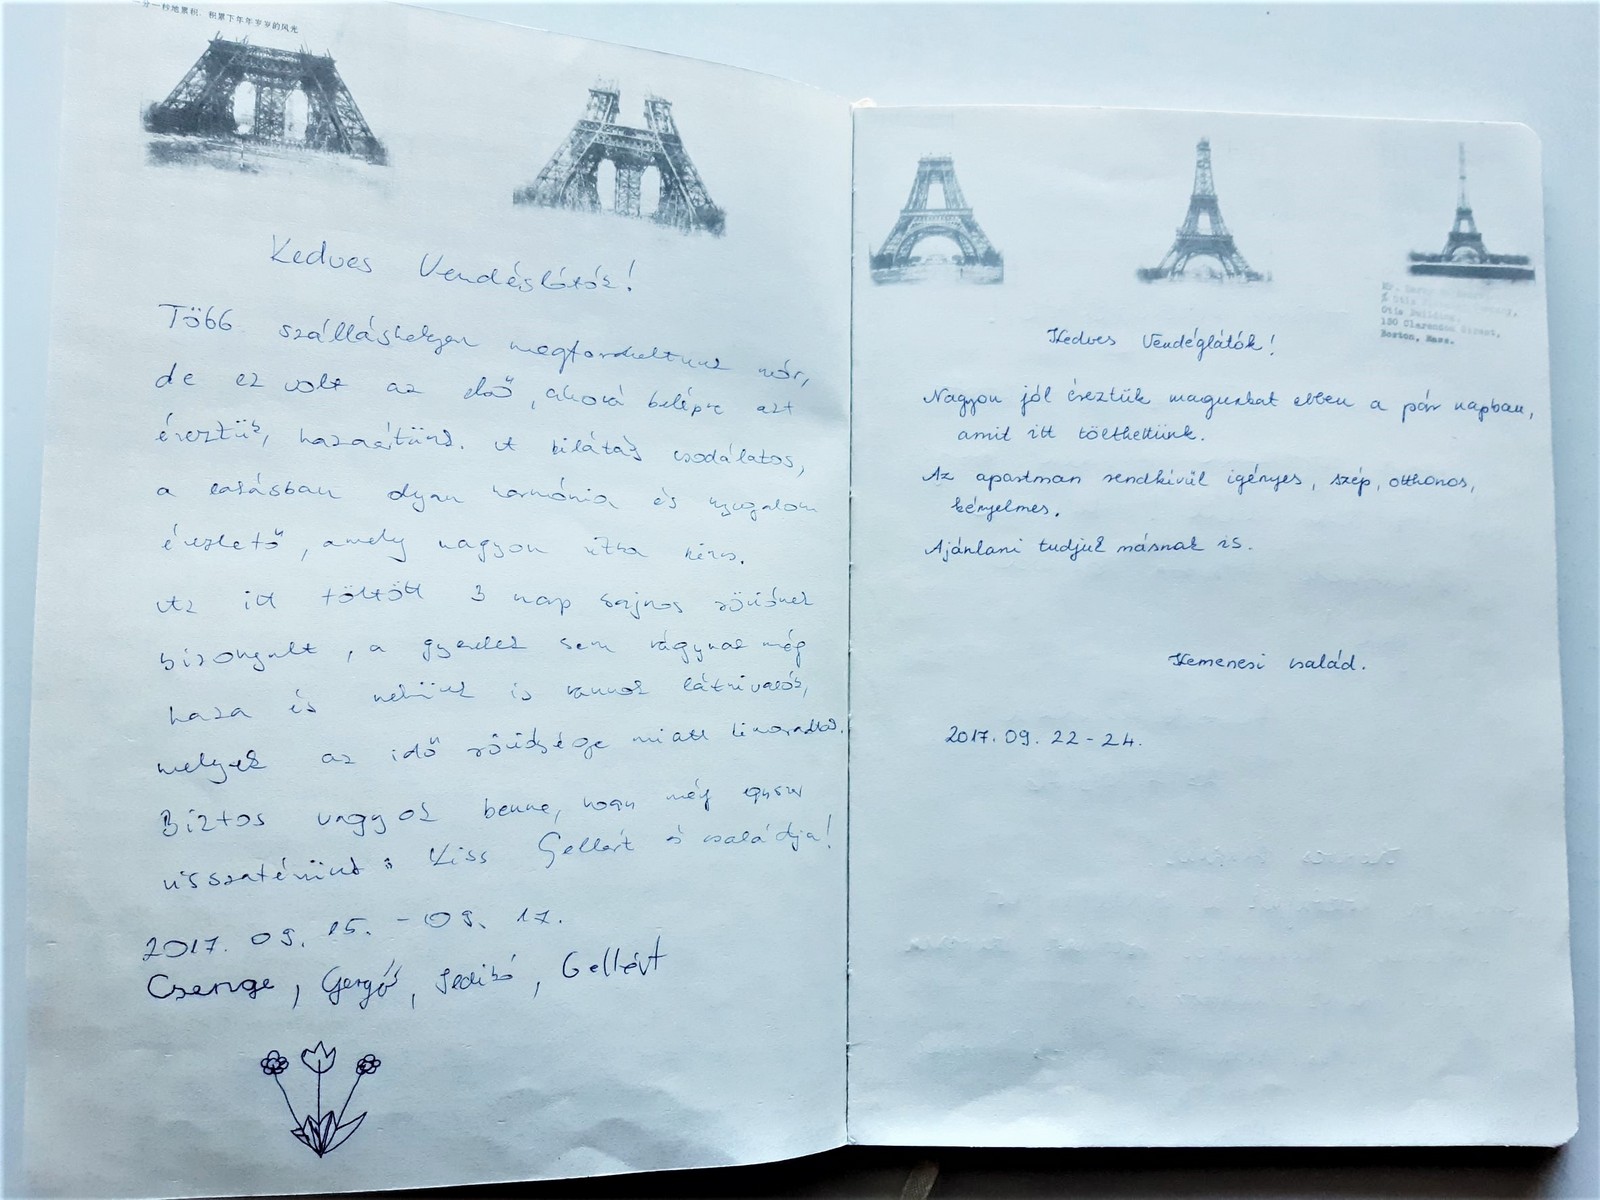 一分一秒地累积，积累下年年岁岁的风光
Kedves Vendéglátók!
Több szálláshelyen megfordultunk már,
de ez volt az első, ahová belépve azt
éreztük, hazaértünk. A kilátás csodálatos,
a lakásban olyan harmónia és nyugalom
érezhető, amely nagyon ritka kincs.
Az itt töltött 3 nap sajnos rövidnek
bizonyult, a gyerekek sem vágynak még
haza és nekünk is vannak látnivalók,
melyek az idő rövidsége miatt kimaradtak.
Biztos vagyok benne, hogy még egyszer
visszatérünk: Kiss Gellért és családja!
2017. 09. 15. - 09. 17.
Csenge, Gergő, Gellért
Otis Building,
150 Clarendon Street,
Boston, Mass.
Kedves Vendéglátók!
Nagyon jól éreztük magunkat ebben a pár napban,
amit itt tölthettünk.
Az apartman rendkívül igényes, szép, otthonos,
kényelmes.
Ajánlani tudjuk másnak is.
Kemenesi család.
2017. 09. 22-24.